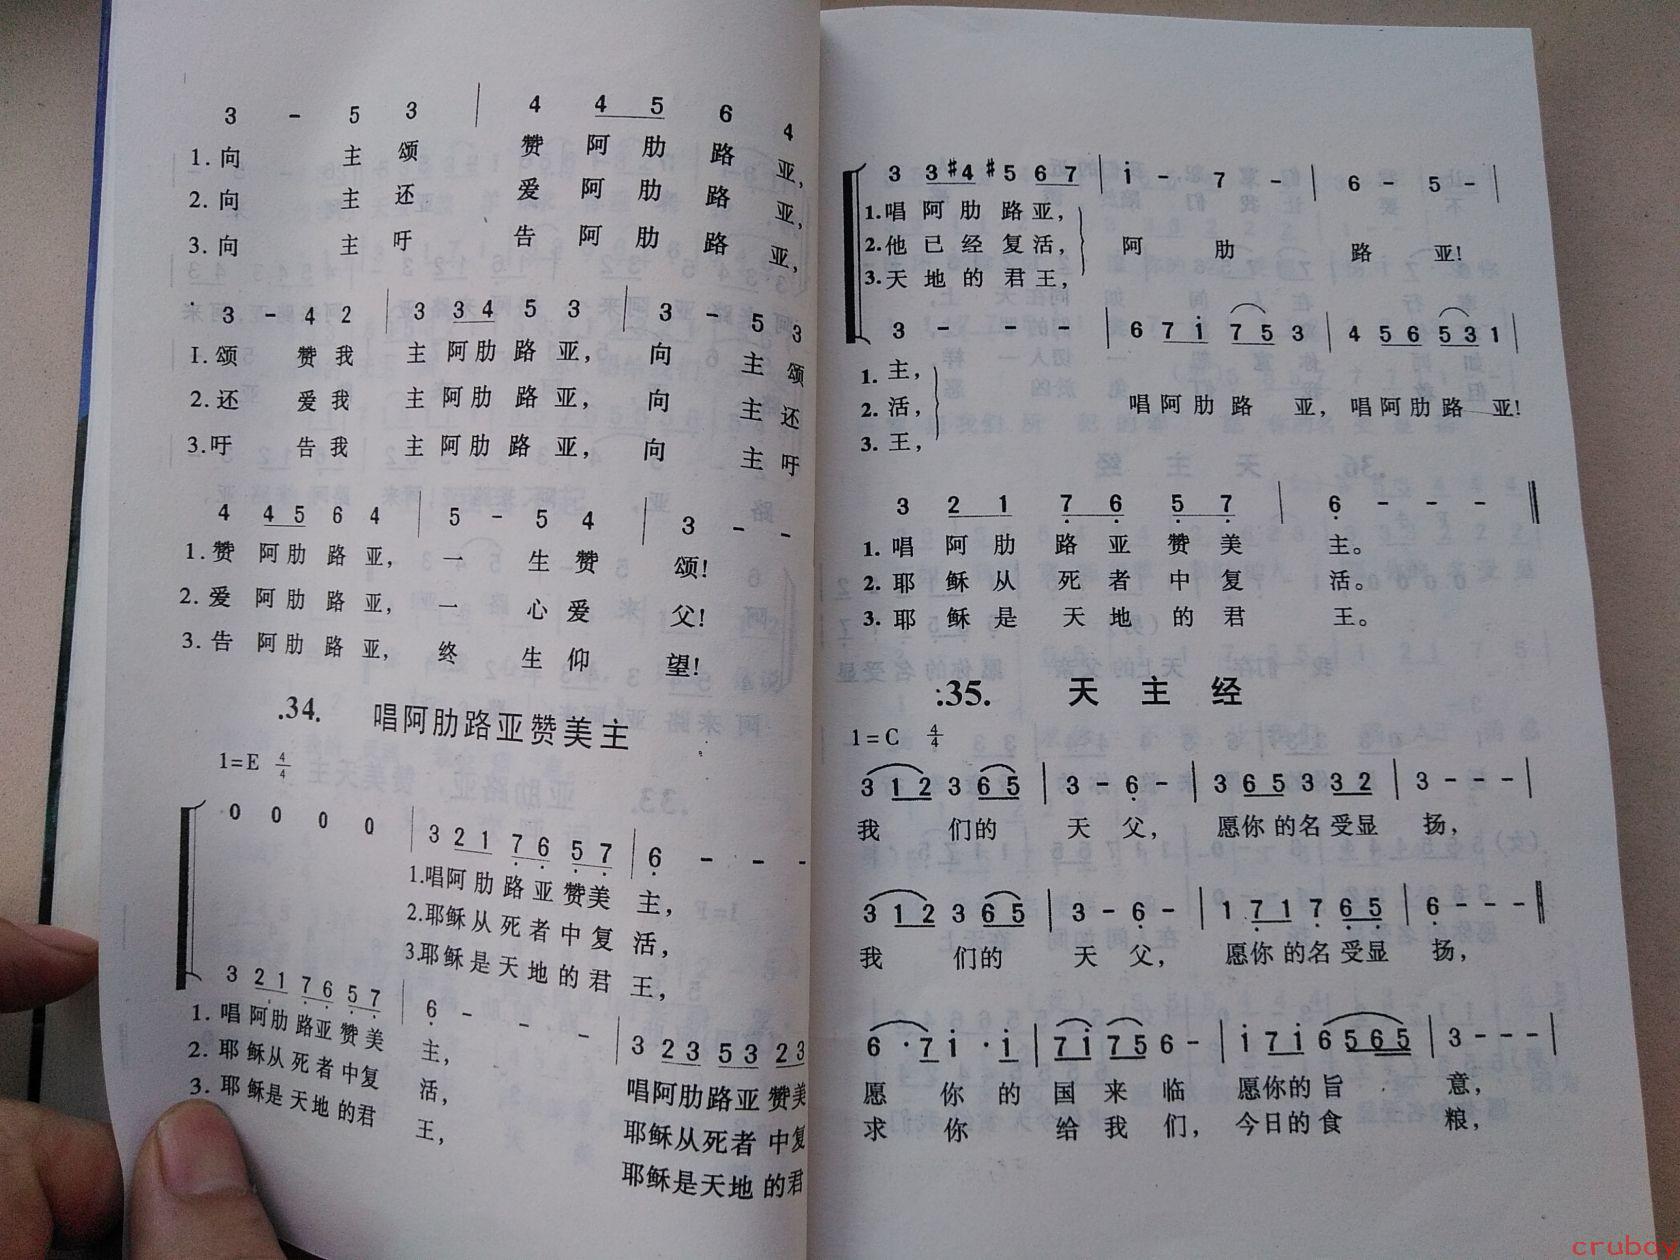 3 - 5 3 | 4 4 5 6 4
1.向 主 颂 赞 阿 肋 路 亚,
2.向 主 还 爱 阿 肋 路 亚,
3.向 主 吁 告 阿 肋 路 亚,
3 - 4 2 | 3 3 4 5 3 | 3 - 5 3
1.颂 赞 我 主 阿 肋 路 亚, 向 主 颂
2.还 爱 我 主 阿 肋 路 亚, 向 主 还
3.吁 告 我 主 阿 肋 路 亚, 向 主 吁
4 4 5 6 4 | 5 - 5 4 | 3 - -
1.赞 阿 肋 路 亚, 一 生 赞 颂!
2.爱 阿 肋 路 亚, 一 心 爱 父!
3.告 阿 肋 路 亚, 终 生 仰 望!
.34. 唱阿肋路亚赞美主
1=E 4/4
0 0 0 0 | 3 2 1 7̣ 6̣ 5̣ 7̣ | 6̣ - - -
1.唱阿 肋 路 亚 赞 美 主,
2.耶稣 从 死 者 中 复 活,
3.耶稣 是 天 地 的 君 王,
3 2 1 7̣ 6̣ 5̣ 7̣ | 6̣ - - - | 3 2 3 5 3 2 3
1.唱 阿 肋 路亚 赞 美 主, 唱阿肋路亚 赞美
2.耶 稣从 死 者 中复 活, 耶稣从死者 中复
3.耶 稣是 天 地 的君 王, 耶稣是天地 的君
3 3 #4 #5 6 7 | i - 7 - | 6 - 5 - |
1.唱 阿 肋 路 亚,
2.他 已 经 复 活, 阿 肋 路 亚!
3.天 地 的 君 王,
3 - - - | 6 7 i 7 5 3 | 4 5 6 5 3 1 |
1. 主,
2. 活, 唱 阿 肋 路 亚, 唱 阿 肋 路 亚!
3. 王,
3 2 1 7̣ 6̣ 5̣ 7̣ | 6̣ - - - ‖
1. 唱 阿 肋 路 亚 赞 美 主。
2. 耶 稣 从 死 者 中 复 活。
3. 耶 稣 是 天 地 的 君 王。
:35. 天 主 经
1=C 4/4
3 1 2 3 6̣ 5̣ | 3 - 6̣ - | 3 6 5 3 3 2 | 3 - - - |
我 们的 天 父, 愿你 的名 受显 扬,
3 1 2 3 6 5 | 3 - 6̣ - | 1 7̣ 1 7̣ 6̣ 5̣ | 6̣ - - - ‖
我 们的 天 父, 愿你 的名 受显 扬,
6 · 7 i · i | 7 i 7 5 6 - | i 7 i 6 5 6 5 | 3 - - - |
愿 你 的 国 来 临 愿你的 旨 意,
求 你 给 我 们, 今日的 食 粮,
cruboy